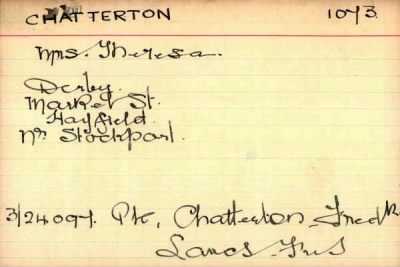 CHATTERTON 1073.
Mrs. Theresa.
Derby.
Market St.
Hayfield.
Nr Stockport.
3/24097. Pte, Chatterton Fredk
Lancs Fus